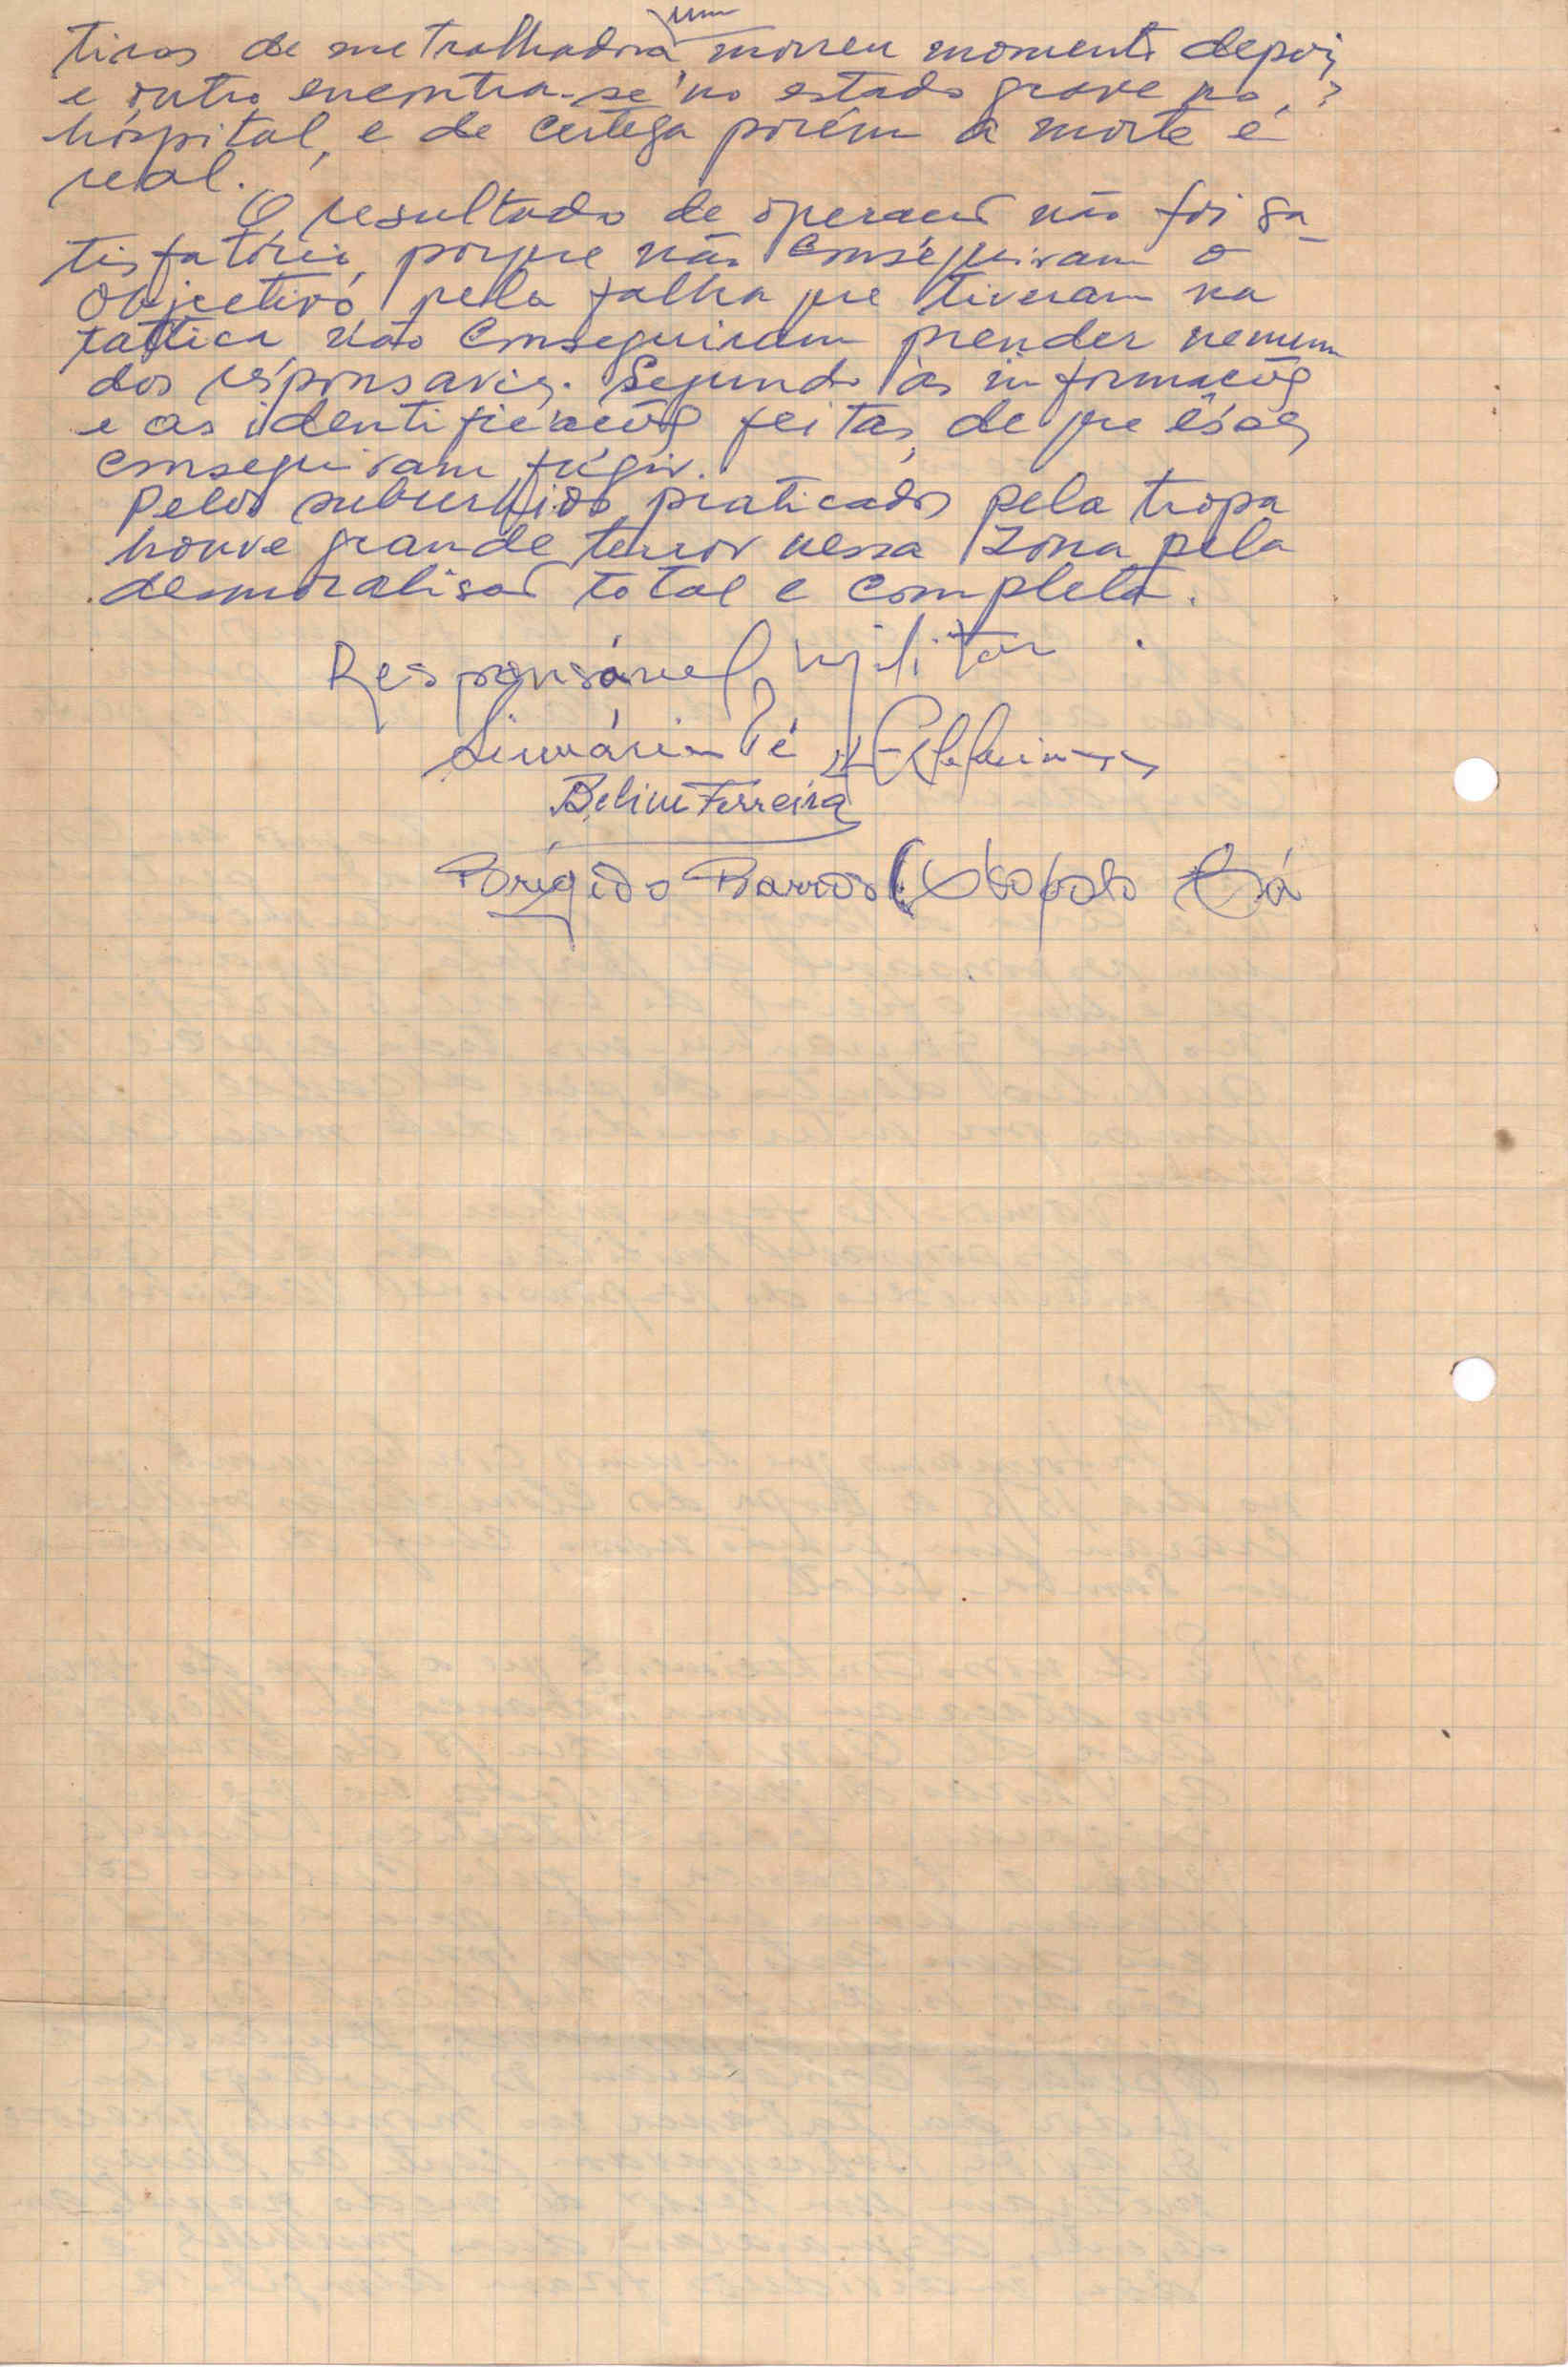 tiros de metralhadora um morreu momento depois
e outro encontra-se no estado grave no
hospital, e de certeza porém a morte é
real.
O resultado de operação não foi sa-
tisfatório, porque não conseguiram o
objectivo pela falha que tiveram na
tactica não conseguiram prender nenum
dos responsaveis. Segundo as informações
e as identificações feitas, de que êsses
conseguiram fugir.
Pelos praticados pela tropa
houve grande terror nessa Zona pela
desmoralisação total e completa.
Responsável Militar
Pé
Belim Ferreira
Brígido Barros Bá